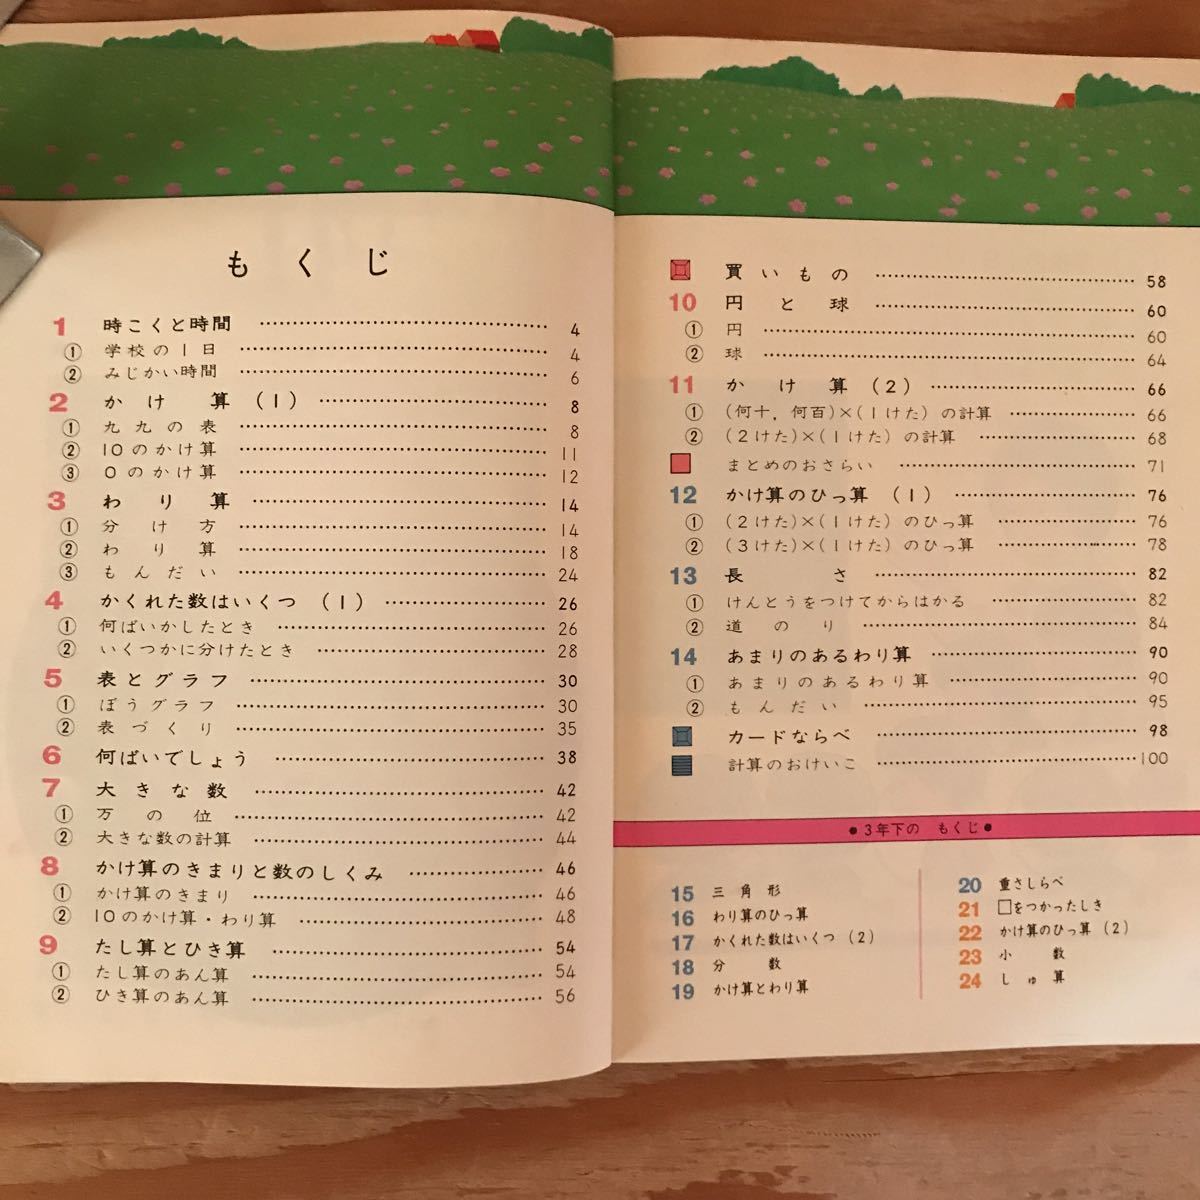 もくじ
1 時こくと時間 4
① 学校の1日 4
② みじかい時間 6
2 かけ算(1) 8
① 九九の表 8
② 10のかけ算 11
③ 0のかけ算 12
3 わり算 14
① 分け方 14
② わり算 18
③ もんだい 24
4 かくれた数はいくつ(1) 26
① 何ばいかしたとき 26
② いくつかに分けたとき 28
5 表とグラフ 30
① ぼうグラフ 30
② 表づくり 35
6 何ばいでしょう 38
7 大きな数 42
① 万の位 42
② 大きな数の計算 44
8 かけ算のきまりと数のしくみ 46
① かけ算のきまり 46
② 10のかけ算・わり算 48
9 たし算とひき算 54
① たし算のあん算 54
② ひき算のあん算 56
買いもの 58
10 円と球 60
① 円 60
② 球 64
11 かけ算(2) 66
① (何十,何百)×(1けた)の計算 66
② (2けた)×(1けた)の計算 68
まとめのおさらい 71
12 かけ算のひっ算(1) 76
① (2けた)×(1けた)のひっ算 76
② (3けた)×(1けた)のひっ算 78
13 長さ 82
① けんとうをつけてからはかる 82
② 道のり 84
14 あまりのあるわり算 90
① あまりのあるわり算 90
② もんだい 95
カードならべ 98
計算のおけいこ 100
●3年下の もくじ●
15 三角形
16 わり算のひっ算
17 かくれた数はいくつ(2)
18 分数
19 かけ算とわり算
20 重さしらべ
21 □をつかったしき
22 かけ算のひっ算(2)
23 小数
24 しゅ算